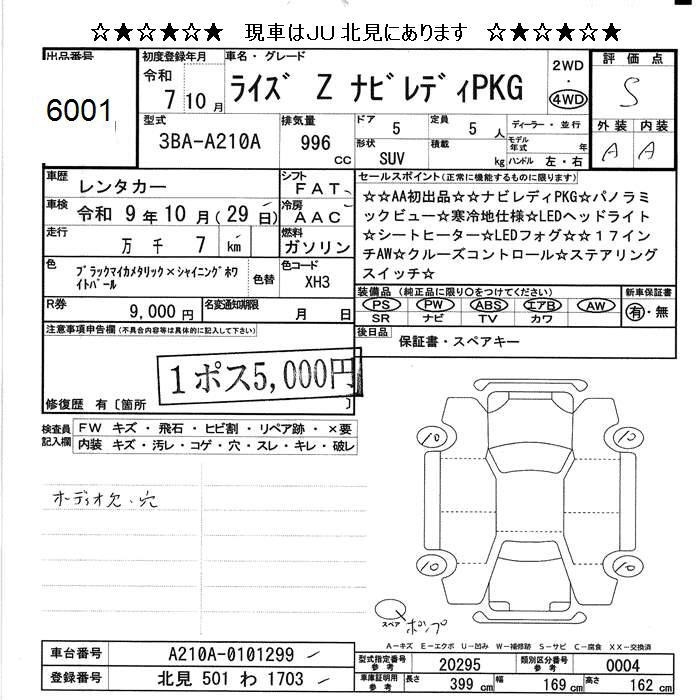 ☆★☆★☆★☆ 現車はJU北見にあります ☆★☆★☆★☆
出品番号
6001
初度登録年月
令和
7 10 月
車名・グレード
ライズ Z ナビレディPKG
2WD
・
4WD
評価点
S
外装 内装
A A
型式
3BA-A210A
排気量
996
cc
ドア 5
定員 5 人
ディーラー・並行
形状 SUV
積載 kg
モデル年式 年
ハンドル 左・右
車歴 レンタカー
シフト FAT
車検 令和 9 年 10 月 (29 日)
冷房 AAC
走行 万 千 7 km
燃料 ガソリン
色 ブラックマイカメタリック×シャイニングホワイトパール
色替
色コード XH3
R券 9,000 円
名変通知期限 月 日
セールスポイント(正常に機能するものに限ります)
☆☆AA初出品☆☆ナビレディPKG☆パノラミ
ックビュー☆寒冷地仕様☆LEDヘッドライト
☆シートヒーター☆LEDフォグ☆☆17イン
チAW☆クルーズコントロール☆ステアリング
スイッチ☆
装備品 (純正品に限り○をつけてください)
新車保証書
PS PW ABS エアB AW
SR ナビ TV カワ
有・無
後日品 保証書・スペアキー
注意事項申告欄 (不具合内容等は具体的に記入して下さい)
1ポス5,000円
修復歴 有〔箇所 〕
検査員
記入欄
FW キズ・飛石・ヒビ割・リペア跡・×要
内装 キズ・汚レ・コゲ・穴・スレ・キレ・破レ
オーディオ欠、穴
10 10
10 10
スペア ポンプ
A－キズ E－エクボ U－凹み W－補修跡 S－サビ C－腐食 XX－交換済
車台番号 A210A-0101299
登録番号 北見 501 わ 1703
型式指定番号
参考
20295
類別区分番号
参考
0004
車庫証明用
参考
長さ 399 cm
幅 169 cm
高さ 162 cm